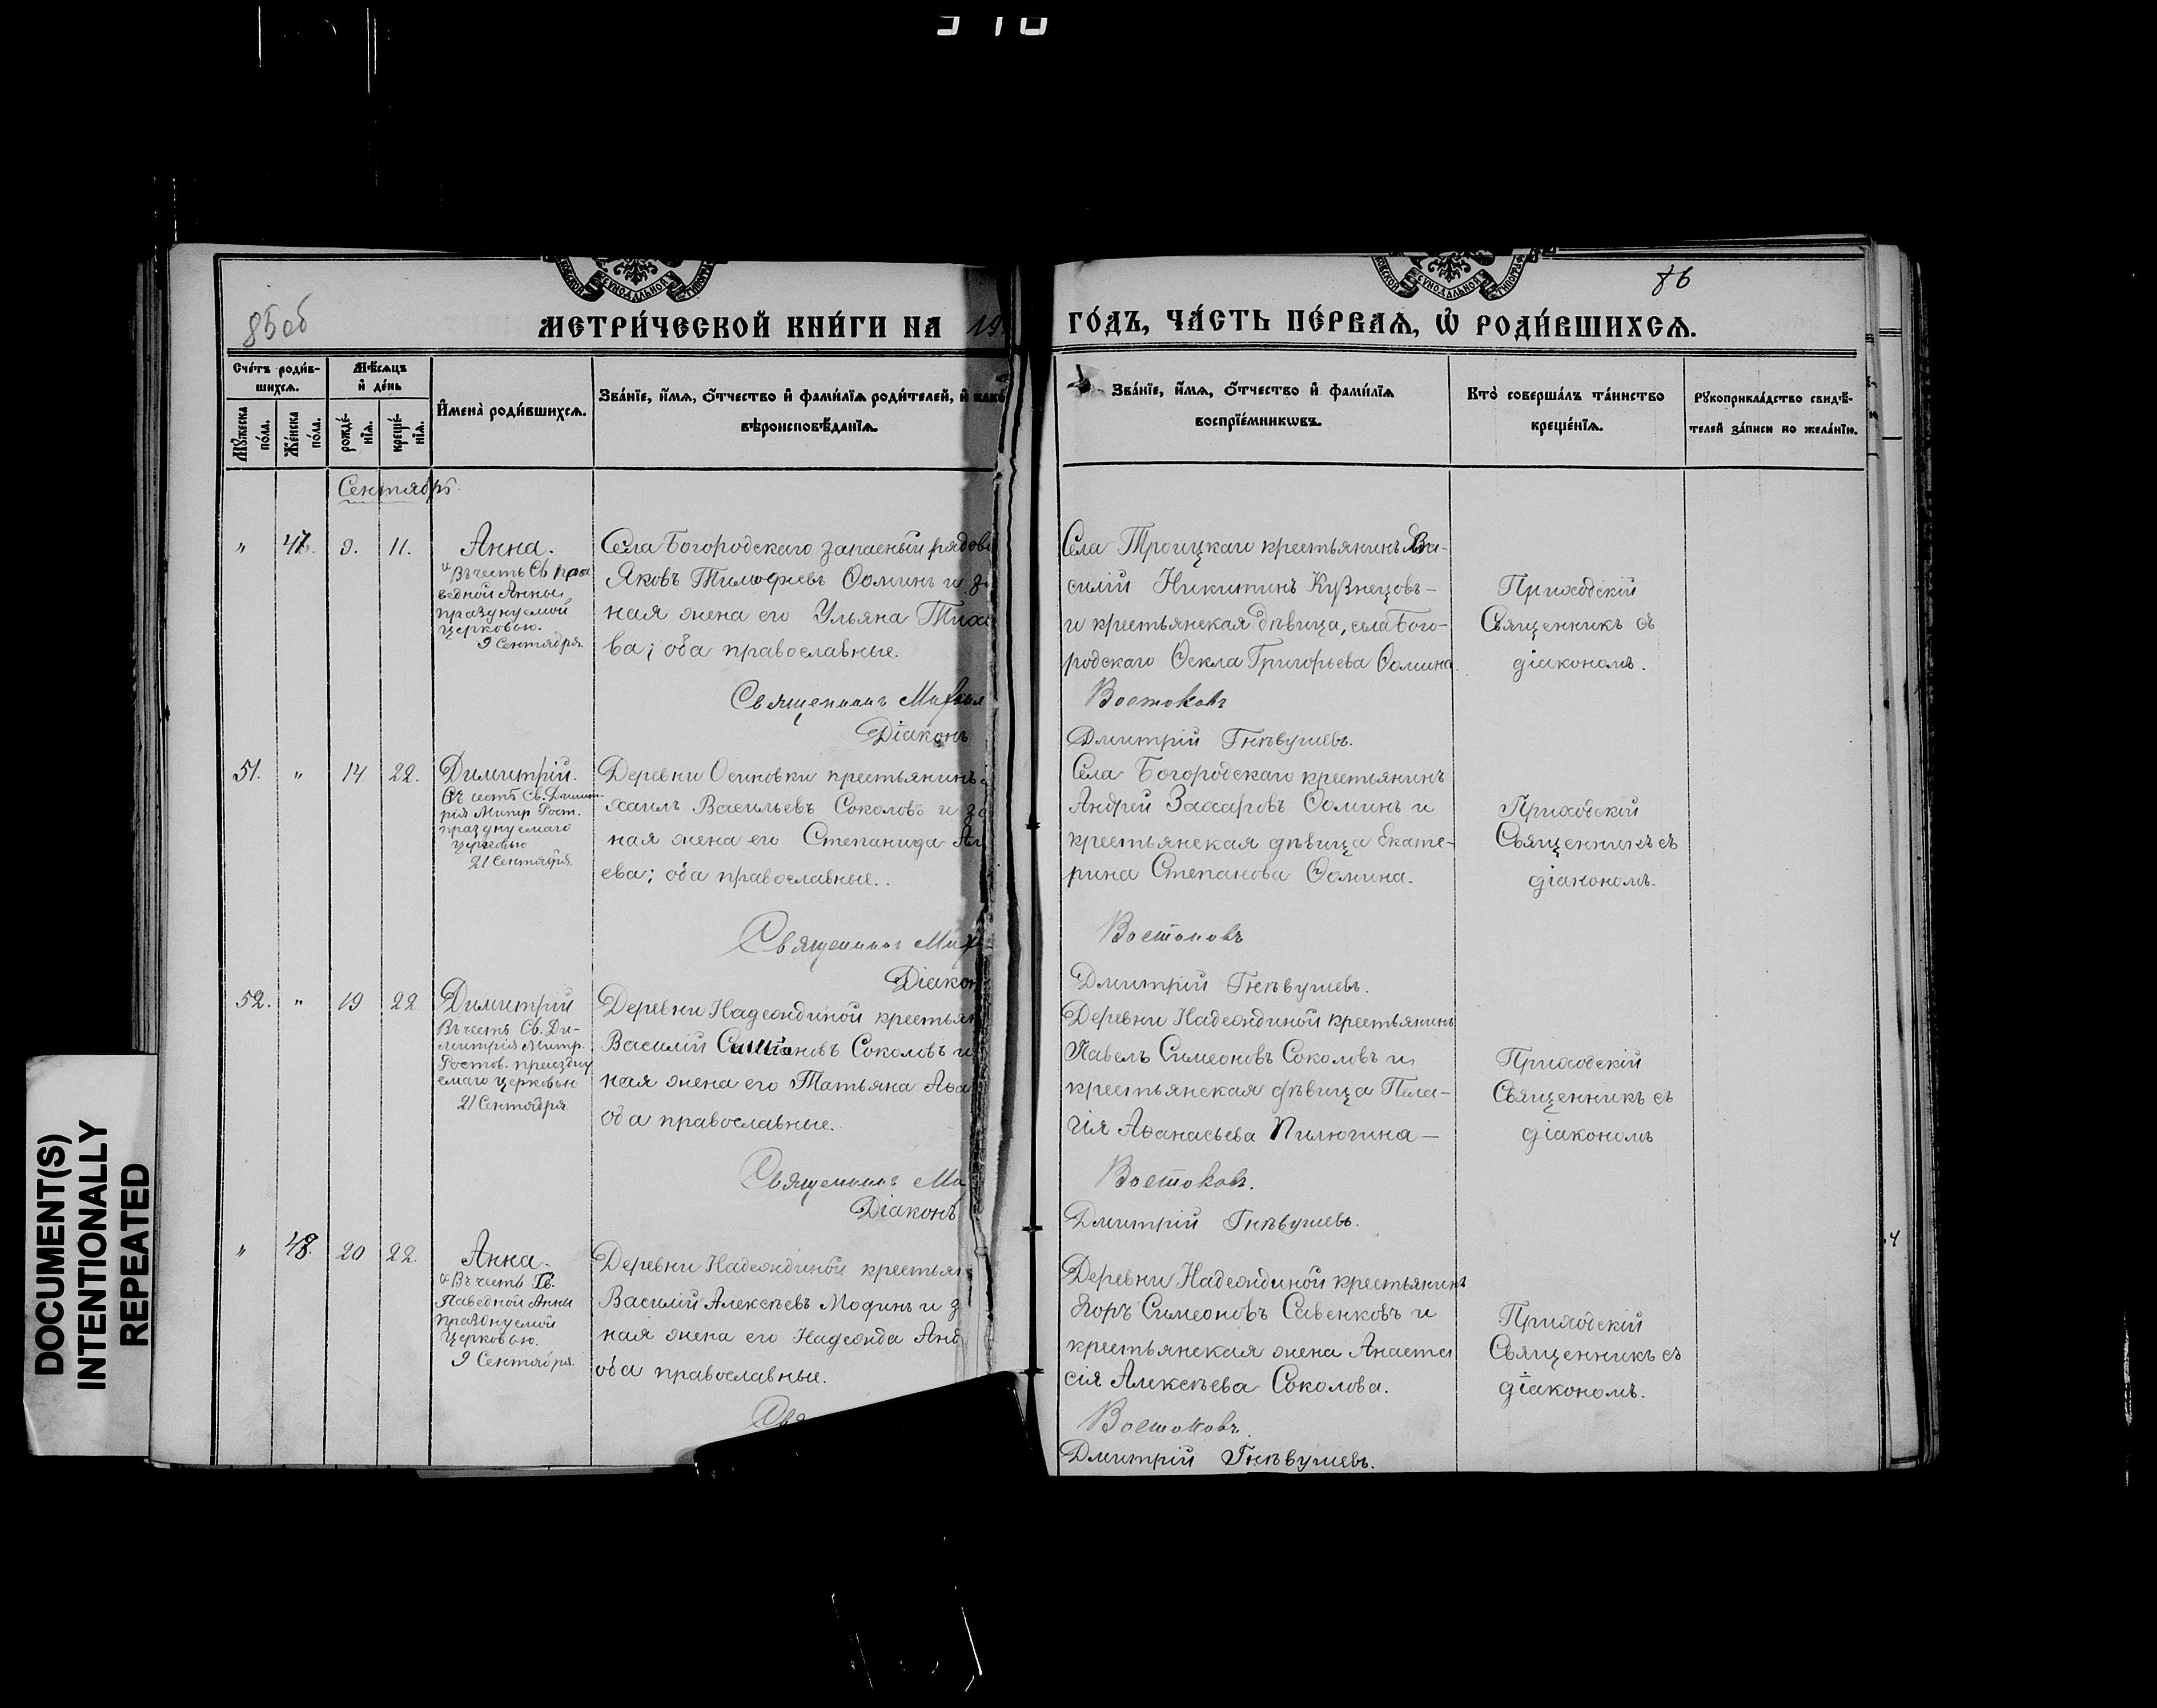 85об
86
МЕТРИ́ЧЕСКОЙ КНИ́ГИ НА 19
ГО́ДЪ, ЧА́СТЬ ПЕ́РВАѦ, Ѡ҆ РОДИ́ВШИХСѦ.
Сче́тъ роди́в-
шихсѧ.
Мꙋ́жеска
по́ла.
Же́нска
по́ла.
Мѣ́сѧцъ
и҆ де́нь
рожде́-
нїѧ.
креще́-
нїѧ.
И҆мена̀ роди́вшихсѧ.
Зва́нїе, и҆́мѧ, ѻ҆́тчество и҆ фами́лїѧ роди́телей, и҆ како
вѣроисповѣ́данїѧ.
Зва́нїе, и҆́мѧ, ѻ҆́тчество и҆ фами́лїѧ
воспрїе́мникѡвъ.
Кто̀ соверша́лъ та́инство
креще́нїѧ.
Рꙋкоприкла́дство свидѣ́-
телей за́писи по жела́нїю.
Сентябрь.
" 47. 9. 11.
Анна.
Въ честь Св. пра
ведной Анны
празднуемой
церковью.
9 Сентября.
Села Богородскаго запасный рядово
Яковъ Тимофеевъ Ѳоминъ и за
ная жена его Ульяна Тихо
ва; оба православные.
Священникъ Михаил
Діаконъ
Села Троицкаго крестьянинъ Ва-
силій Никитинъ Кузнецовъ-
и крестьянская дѣвица, села Бого-
родскаго Ѳекла Григорьева Ѳомина.
Востоковъ
Дмитрій Гнѣвушевъ.
Приходскій
Священникъ съ
діакономъ.
51. " 14 22.
Димитрій.
Въ честь Св. Димит-
рія Митр. Рост.
празднуемаго
церковью
21 Сентября.
Деревни Осиновки крестьянинъ
хаилъ Васильевъ Соколовъ и за
ная жена его Степанида Ал
ева; оба православные..
Священникъ Мих
Діакон
Села Богородскаго крестьянинъ
Андрей Захаровъ Ѳоминъ и
крестьянская дѣвица Екате-
рина Степанова Ѳомина.
Востоковъ
Дмитрій Гнѣвушевъ.
Приходскій
Священникъ съ
діакономъ.
52. " 19 22
Димитрій
Въ честь Св. Ди-
митрія Митр.
Ростов. праздну
емаго церковью
21 Сентября
Деревни Надеждиной крестьян
Василій Соколовъ и
ная жена его Татьяна Аѳа
оба православные.
Священникъ Ми
Діаконъ
Деревни Надеждиной крестьянинъ
Павелъ Симеоновъ Соколовъ и
крестьянская дѣвица Пела-
гія Аѳанасьева Пилюгина-
Востоковъ.
Дмитрій Гнѣвушевъ.
Приходскій
Священникъ съ
діакономъ
" 48. 20 22.
Анна.
Въ честь Св.
Паведной Анны
празднуемой
Церковью.
9 Сентября.
Деревни Надеждиной крестьян
Василій Алексѣевъ Мофинъ и з
ная жена его Надежда Анд
оба православные.
Свя
Деревни Надеждиной крестьянинъ
Егоръ Симеоновъ Савенковъ и
крестьянская жена Анаста
сія Алексѣева Соколова.
Востоковъ.
Дмитрій Гнѣвушевъ.
Приходскій
Священникъ съ
діакономъ.
DOCUMENT(S)
INTENTIONALLY
REPEATED